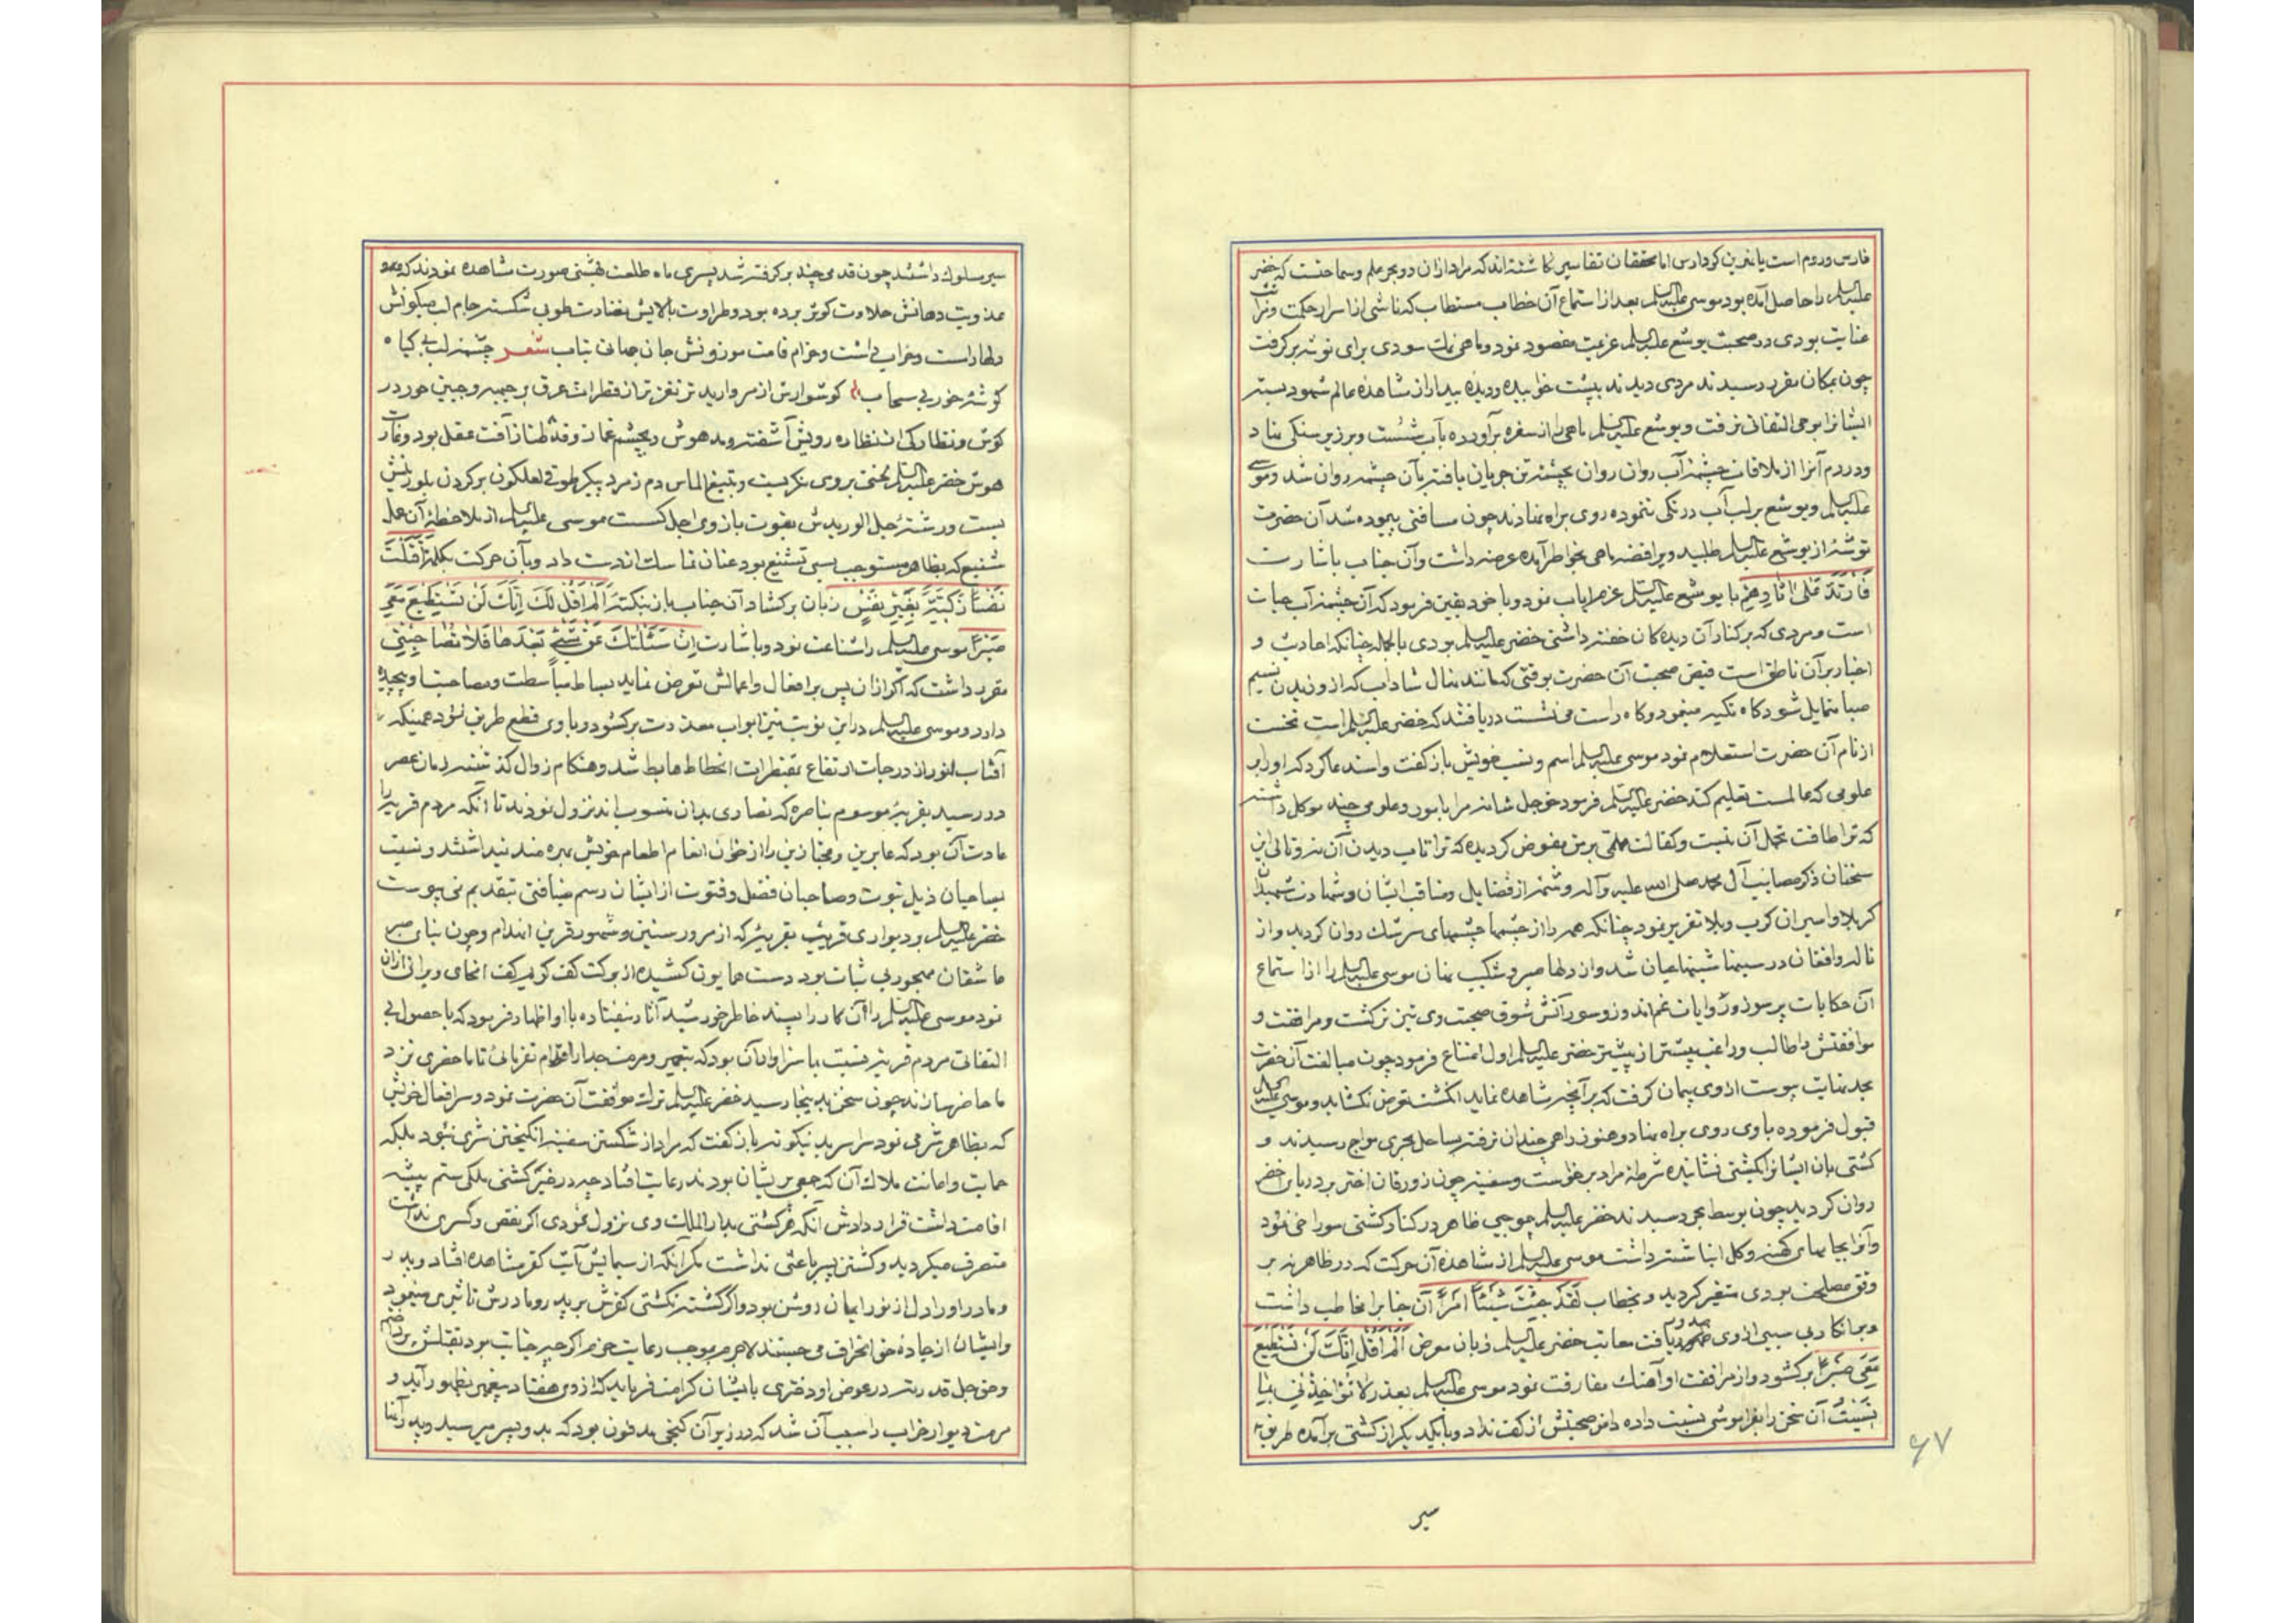 فارس و روم است یا بحرین کر و ارس اما محققان تفاسیر نکاشته‌اند که مراد ازان دو بحر علم و سماحتست که خضر
علیه السلم را حاصل آمده بود موسی علیه السلم بعد از استماع آن خطاب مستطاب که ناشی از اسرار حکمت
عنایت بودی در صحبت یوشع علیه السلم عزیمت مقصود نمود و ماهی نمک سودی برای توشه برکرفت
چون بمکان مقرر رسیدند مردی دیدند بپشت خوابیده و دیده بیدار از مشاهده عالم شهود بسته
ایشانرا بوی التفاتی نرفت و یوشع علیه السلم ماهی را از سفره برآورده بآب شست و بر زبر سنکی نهاد
و در دم آنرا از ملاقات چشمه آب روان روان بچشمه تن جریان یافته بآن چشمه روان شد و موسی
علیه السلم و یوشع بر لب آب درنکی ننموده روی براه نهادند چون مسافتی پیموده شد آن حضرت
توشه از یوشع علیه السلم طلبید ویرا قضه ماهی بخواطر آمده عرضه داشت و آن جناب باشارت
فَارْتَدَّا عَلی اثَارِهِمٰا با یوشع علیه السلم عزم ایاب نمود و با خود بیقین فرمود که آن چشمه آب حیات
است و مردی که بر کنار آن دیده کان خفته داشتی خضر علیه السلم بودی بالجمله چنانکه احادیث و
اخبار بر آن ناطق است فیض صحبت آن حضرت بوقتی که مانند نهال شاداب که از وزیدن نسیم
صبا متمایل شود کاه تکیه مینمود و کاه راست می‌نشست دریافتند که خضر علیه السلم است نخست
از نام آن حضرت استعلام نمود موسی علیه السلم اسم و نسب خویش باز کفت و استدعا کرد که او را بر
علومی که عالمست تعلیم کند خضر علیه السلم فرمود خو جل شانه مرا بامور و علومی چند موکل داشته
که ترا طاقت تحمل آن نیست و کفالت مهامی بر من مفوض کردیده که ترا تاب دیدن آن نه و تالی این
سخنان ذکر مصائب آل محمد صلی الله علیه و آله و شمه از فضایل و مناقب ایشان و شهادت شهیدان
کربلا و اسیران کرب و بلا تقریر نمود چنانکه همه را از چشمها چشمهای سرشک روان کردید و از
ناله و افغان در سینها شینها عیان شد و از دلها صبر و شکیب نهان موسی علیه السلم را از استماع
آن حکایات پر سوز و روایات غم‌اندوز و سور آتش شوق صحبت وی تیز تر کشت و مرافقت و
موافقتش را طالب و راغب بیشتر از پیشتر خضر علیه السلم اول امتناع فرمود چون مبالغت آن حضرت
بحد نهایت پیوست از وی پیمان کرفت که بر آنچه مشاهده نماید انکشت تعرض نکشاید و موسی علیه السلم
قبول فرموده با وی روی براه نهاد و هنوز راهی چندان نرفته بساحل بحری مواج رسیدند و
کشتی‌بان ایشانرا بکشتی نشانیده شرطه مراد برخواست و سفینه چون زورقان اختر بر دریای اخضر
روان کردید چون بوسط بحر رسیدند خضر علیه السلم بموجبی ظاهر در کنار کشتی سوراخی نمود
و آنرا بجامهای کهنه و کل انباشته داشت موسی علیه السلم از مشاهده آن حرکت که در ظاهر نه بر
وفق مصلحت بودی متغیر کردید و بخطاب لَقَدْ جِئْتَ شَیْئًا اِمْرًا آن جنابرا مخاطب داشت
و بر انکار بی سببی از وی صدور یافت معاتب خضر علیه السلم زبان بمعرض اَلَمْ اَقُلْ اِنَّکَ لَنْ تَسْتَطِیعَ
مَعِیَ صَبْرًا برکشود و از مرافقت او آهنک مفارقت نمود موسی علیه السلم بعذر لا تُؤاخِذْنِی بِمٰا
نَسِیتُ آن سخن را بفراموشی نسبت داده دامن صحبتش از کف نداد و با یکدیکر از کشتی برآمده طریق
سیر
۶۷
سیر سلوک داشتند چون قدمی چند برکرفته شد پسری ماه طلعت بهشتی صورت مشاهده نمودند که
عذوبت دهانش حلاوت کوثر برده بود و طراوت بالایش نضارت طوبی شکسته جام لب میکونش
دلها راست و خراب داشت و خرام قامت موزونش جان جهانی بتاب شعر چشمه لب بی کیاه
کوشه خور بی سحاب کوشوارش از مروارید تر نغزتر از قطرات عرق بر جبهه و جبین حور در
کوش و نظارکی از نظاره رویش آشفته و مدهوش چشم غماز و قد طناز آفت عقل بود و غارت
هوش خضر علیه السلم لختی بروی نکریست و بتیغ الماس دم زمرد پیکر طوقی لعلکون بر کردن بلورینش
بست و رشته حبل الوریدش بقوت بازوی اجل کسست موسی علیه السلم از ملاحظه آن عمل
شنیع که بظاهر مستوجب بسی تشنیع بود عنان تماسک از دست داد و بآن حرکت بکلمه اَقَتَلْتَ
نَفْسًا زَکِیَّةً بِغَیْرِ نَفْسٍ زبان برکشاد آن جناب باز بنکته اَلَمْ اَقُلْ لَکَ اِنَّکَ لَنْ تَسْتَطِیعَ مَعِیَ
صَبْرًا موسی علیه السلم را شناعت نمود و باشارت اِنْ سَئَلْتُکَ عَنْ شَیْءٍ بَعْدَهٰا فَلاٰ تُصٰاحِبْنِی
مقرر داشت که اکر ازان پس بر افعال و اعمالش تعرض نماید بساط مباسطت و مصاحبت او پیچیده
دارد و موسی علیه السلم در این نوبت نیز ابواب معذرت برکشود و با وی قطع طریق نمود همینکه
آفتاب انور از درجات ارتفاع بمقنطرات انحطاط هابط شد و هنکام زوال کذشته زمان عصر
در رسید بقریه موسوم بناصره که نصاری بدان منسوب اند نزول نمودند تا آنکه مردم قریه را
عادت آن بود که عابرین و مجتازین را از خوان انعام اطعام خویش بهره‌مند نیداشتند و نسبت
بصاحبان ذیل نبوت و صاحبان فضل و فتوت از ایشان رسم ضیافتی بتقدیم نمی‌پیوست
خضر علیه السلم بر دیواری قریب بقریه که از مرور سنین و شهور قرین انهدام و چون بنای صبر
عاشقان مهجور بی ثبات بود دست همایون کشیده از برکت کف کریم کف انحای ویرانی ازان
نمود موسی علیه السلم را آن کار را پسند خاطر خورشید آثار نیفتاده با او اظهار فرمود که با حصول بی
التفاتی مردم قریه نسبت بما سزاوار آن بود که بتعمیر و مرمت جدار اقدام نفرمائی تا ما حضری نزد
ما حاضر سازند چون سخن بدینجا رسید خضر علیه السلم ترک موافقت آن حضرت نمود و سر افعال خویش
که بظاهر شرمی نمود سراسر بدینکونه باز کفت که مراد از شکستن سفینه انکیختن شری نبود بلکه
حمایت و اعانت ملاک آن که جمعی پریشان بودند رعایت افتاد چه در فیر کشتی ملکی ستم پیشه
اقامت داشت قرار دادش آنکه هر کشتی بدار الملک وی نزول نمودی اکر نقص و کسری نداشت
متصرف میکردید و کشتن پسر باعثی نداشت مکر آنکه از سیمایش آیت کفر مشاهده افتاد و پدر
و مادر او را دل از نور ایمان روشن بود و اکر کشته نکشتی کفرش بر پدر و مادرش تاثیری مینمود
و ایشان از جاده حق انحراف می‌جستند لاجرم بموجب رعایت حزم اکرچه جنایت بود بقتلش پرداختم
و حق جل قدرته در عوض او دختری بایشان کرامت فرماید که از وی هفتاد پیغمبر بظهور آید و
مرمت دیوار خراب را سبب آن شد که در زیر آن کنجی مدفون بود که بدو پسر میرسید و پدر آنها